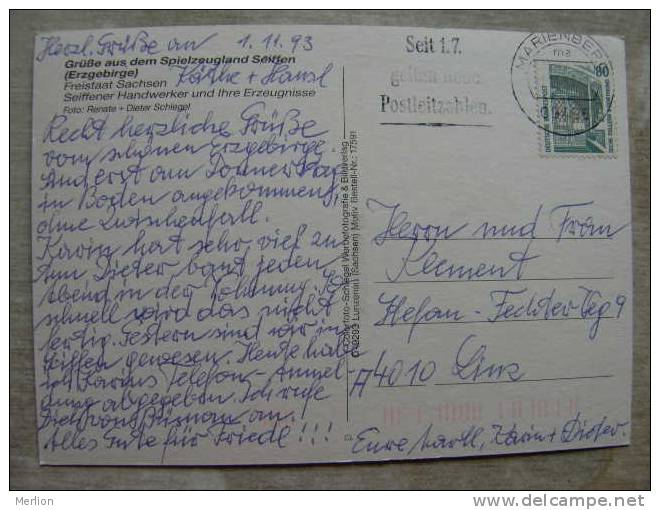 Herzl. Grüße an 1.11.93
Käthe + Hansl
Grüße aus dem Spielzeugland Seiffen
(Erzgebirge)
Freistaat Sachsen
Seiffener Handwerker und Ihre Erzeugnisse
Foto: Renate + Dieter Schlegel
Recht herzliche Grüße
vom schönen Erzgebirge.
Sind erst am Donnerstag
in Boden angekommen,
ohne Zwischenfall.
Karin hat sehr viel zu
tun Dieter baut jeden
Abend in der Wohnung. So
schnell wird das nicht
fertig. Gestern sind wir in
Seiffen gewesen. Heute habe
ich Karins Telefon-Anmel-
dung abgegeben. Ich rufe
Dich von an.
Alles Gute für Friedl!!!
Colorfoto-Schlegel Werbefotografie & Bildverlag
Lunzenau (Sachsen) Motiv Bestell-Nr.: 17591
Seit 1.7.
gelten neue
Postleitzahlen.
MARIENBERG
80
Herrn und Frau
Klement
Stefan-Fechter-Weg 9
A 4010 Linz
Eure Karin + Dieter.
Merlion
www.delcampe.net